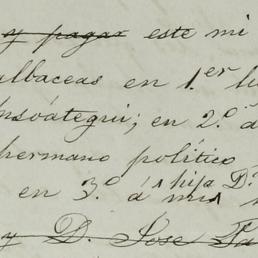 y pagar este mi
albaceas en 1.er lu
nsoátegui; en 2.o a
hermano político
en 3.o á mis hija D.a
y D. Jose Fa